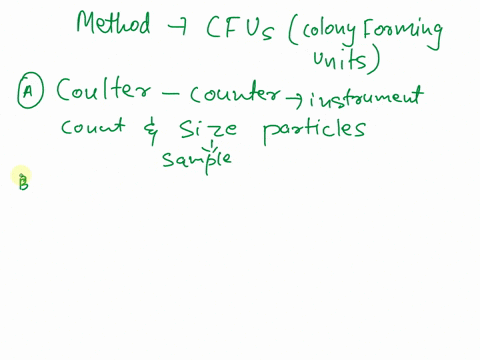 Method → CFUs (Colony Forming
units)
A Coulter - counter → instrument
count & size particles
sample
B